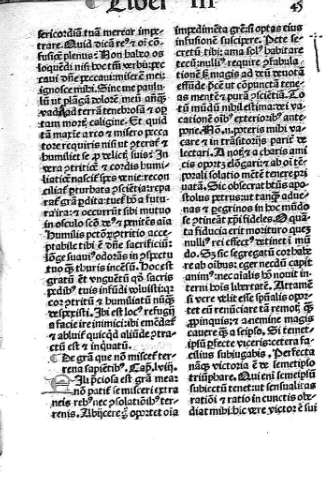 Liber III 45
sericordiā tuā merear impe
trare. Quid dicā re⁹ et oī cō
fusiōe plenus? Non habeo os
loquēdi nisi hoc tm̄ verbū: pec
caui dn̄e peccaui: miserē mei:
ignosce mihi. Sine me paulu
lū ut plāgā dolorē meū anteq̄
vadā ad terrā tenebrosā et op
tam mortꝭ caligine. Et quid
tā maxīe a reo et misero pecca
tore requiris nisi ut cōterat̄ et
humiliet se ꝓ delictꝭ suis? In
vera cōtritiōe et cordis humi
liatiōe nascit̄ spes venie: recon
ciliat̄ ꝑturbata ꝯsciētia: repa
rat̄ grā ꝑdita: tuet̄ hō a futu
ra ira: et occurrūt sibi mutuo
in osculo scō de⁹ et penitēs aīa
Humilis pctōꝝ cōtritio acce
ptabile tibi ē dn̄e sacrificiū:
lōge suaui⁹ odorās in ꝯspectu
tuo q̄ thuris incēsū. Hoc est
gratū ēt vnguētū qd̄ sacris
pedibꝰ tuis infūdi voluisti: q̄
cor cōtritū et humiliatū nunq̄
despexisti. Ibi est loc⁹ refugij
a facie ire inimici: ibi emēdat̄
et abluit̄ quicqd̄ aliūde ꝯtra
ctū est et inquatū.
De grā que nō miscet̄ ter
rena sapiētibꝰ. Cap. lviij.
Fili p̄ciosa est grā mea:
nō patit̄ se misceri extra
neis rebꝰ nec ꝯsolatiōibꝰ ter
renis. Abijcere ḡ oportet oīa
impedimēta grē: si optas eius
infusionē suscipere. Pete se
cretū tibi: ama sol⁹ habitare
tecū: nulli⁹ require ꝯfabula
tionē: sꝫ magis ad deū deuotā
effūde p̄cē: ut cōpunctā tene
as mentē et purā ꝯsciētiā. To
tū mūdū nihil estima: dei va
cationē oībꝰ exterioribꝰ ante
pone. Nō .n. poteris mihi va
care et in trāsitorijs parit̄ de
lectari. A notꝭ et a charis ami
cis oportꝫ elōgari: et ab oī tē
porali solatio mētē tenere pri
uatā. Sic obsecrat btūs apo
stolus petrus: ut tanq̄ adue
nas et pegrinos in hoc mūdo
se cōtineāt xp̄i fideles. O quā
ta fiducia erit morituro quē
nulli⁹ rei affect⁹ detinet ī mū
do. Sꝫ sic segregatū cor habe
re ab oībus: eger necdū capit
anim⁹: nec aīalis hō nouit in
terni hoīs libertatē. Attamē
si vere velit esse spūalis opor
tet eū renūciare tā remotꝭ q̄
ꝓpinquis: et a nemine magis
cauere q̄ a seipso. Si temet
ipsū ꝑfecte viceris: cetera fa
cilius subiugabis. Perfecta
nāq̄ victoria ē de semetipso
triūphare. Qui enī semetipsū
subiectū tenet: ut sensualitas
ratiōi et ratio in cunctis obe
diat mihi: hic vere victor ē sui